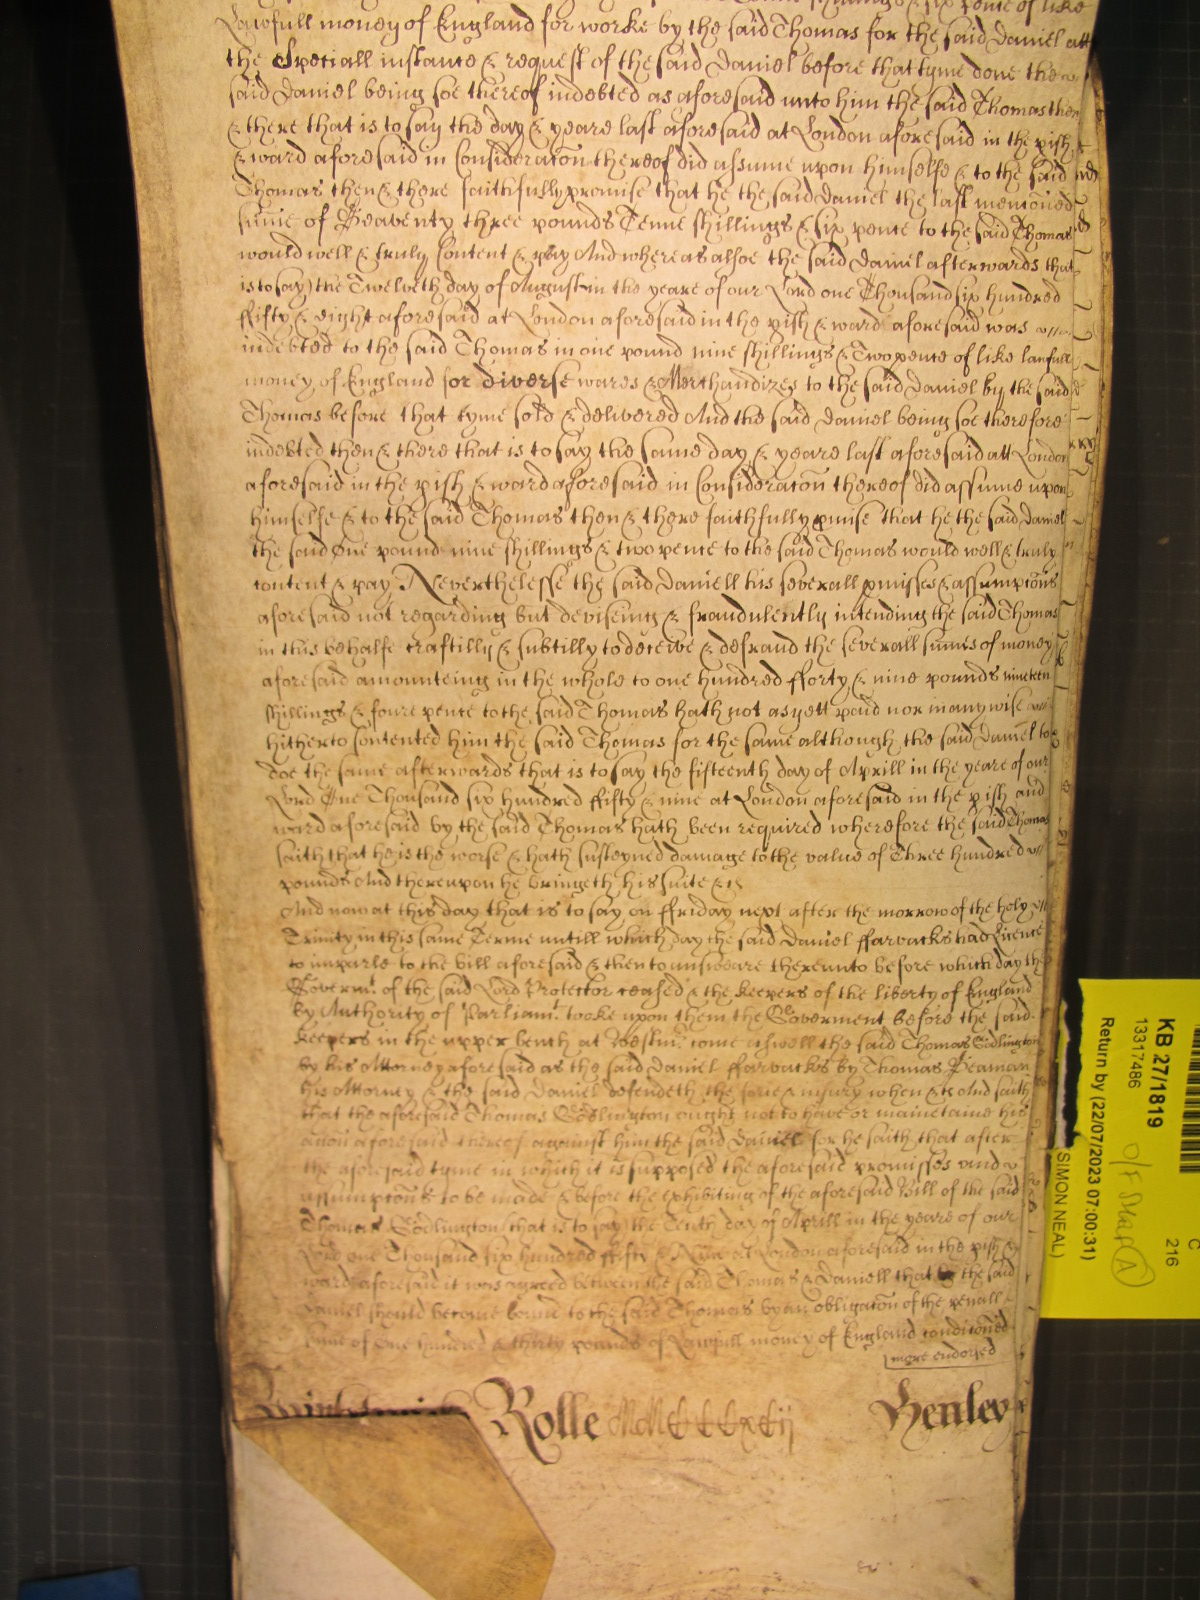 shillings & six pence of like
Lawfull money of England for worke by the said Thomas for the said Daniel att
the Speciall instance & request of the said Daniel before that tyme done the
said Daniel being soe thereof indebted as aforesaid unto him the said Thomas then
& there that is to say the day & yeare last aforesaid at London aforesaid in the pish
& ward aforesaid in Consideracon thereof did assume upon himselfe & to the said
Thomas then & there faithfully promise that he the said Daniel the last mentioned
sume of Seaventy three pounds Tenne shillings & six pence to the said Thomas
would well & truly Content & pay And whereas alsoe the said Daniel afterwards that
is to say the Twelveth day of August in the yeare of our Lord one Thousand six hundred
ffifty & eight aforesaid at London aforesaid in the pish & ward aforesaid was
indebted to the said Thomas in one pound nine shillings & Two pence of like lawfull
money of England for diverse wares & Merchandizes to the said Daniel by the said
Thomas before that tyme sold & delivered And the said Daniel being soe therefore
indebted then & there that is to say the same day & yeare last aforesaid att London
aforesaid in the pish & ward aforesaid in Consideracon thereof did assume upon
himselfe & to the said Thomas then & there faithfully pmise that he the said Daniel
the said One pound nine shillings & two pence to the said Thomas would well & truly
content & pay Neverthelesse the said Daniell his severall pmisses & assumpcons
aforesaid not regarding but deviseing & fraudulently intending the said Thomas
in this behalfe craftilly & subtilly to deceive & defraud the severall sumes of money
aforesaid amounteing in the whole to one hundred fforty & nine pounds nineteen
shillings & foure pence to the said Thomas hath not as yett paid nor in any wise
hitherto contented him the said Thomas for the same although the said Daniel to
doe the same afterwards that is to say the fifteenth day of Aprill in the yeare of our
Lord One Thousand six hundred ffifty & nine at London aforesaid in the pish and
ward aforesaid by the said Thomas hath been required wherefore the said Thomas
saith that he is the worse & hath susteyned damage to the value of Three hundred
pounds And thereupon he bringeth his suite &c
And now at this day that is to say on ffriday next after the morrow of the holy
Trinity in this same Terme untill which day the said Daniel ffarvacks had Licence
to imparle to the bill aforesaid & then to answeare thereunto before which day the
Governmt of the said Lord Protector ceased & the Keepers of the liberty of England
by Authority of Parliamt tooke upon them the Goverment before the said
Keepers in the upper bench at Westminr come aswell the said Thomas Godlington
by his Attorney aforesaid as the said Daniel ffarvacks by Thomas Beaman
his Attorney & the said Daniel defendeth the force & injury when &c And saith
that the aforesaid Thomas Godlington ought not to have or mainetaine his
accon aforesaid thereof against him the said Daniel for he saith that after
the aforesaid tyme in which it is supposed the aforesaid promisses and
assumpcons to be made & before the exhibiting of the aforesaid Bill of the said
Thomas Godlington that is to say the Tenth day of Aprill in the yeare of our
Lord one Thousand six hundred ffifty & Nine at London aforesaid in the pish &
ward aforesaid it was agreed betweene the said Thomas & Daniell that the said
Daniel should become bound to the said Thomas by an obligacon of the penall
sume of One hundred & thirty pounds of Lawfull money of England conditioned
more endorsed
Rolle Henley
KB 27/1819
13317486
Return by (22/07/2023 07:00:31)
SIMON NEAL)
C
216
A